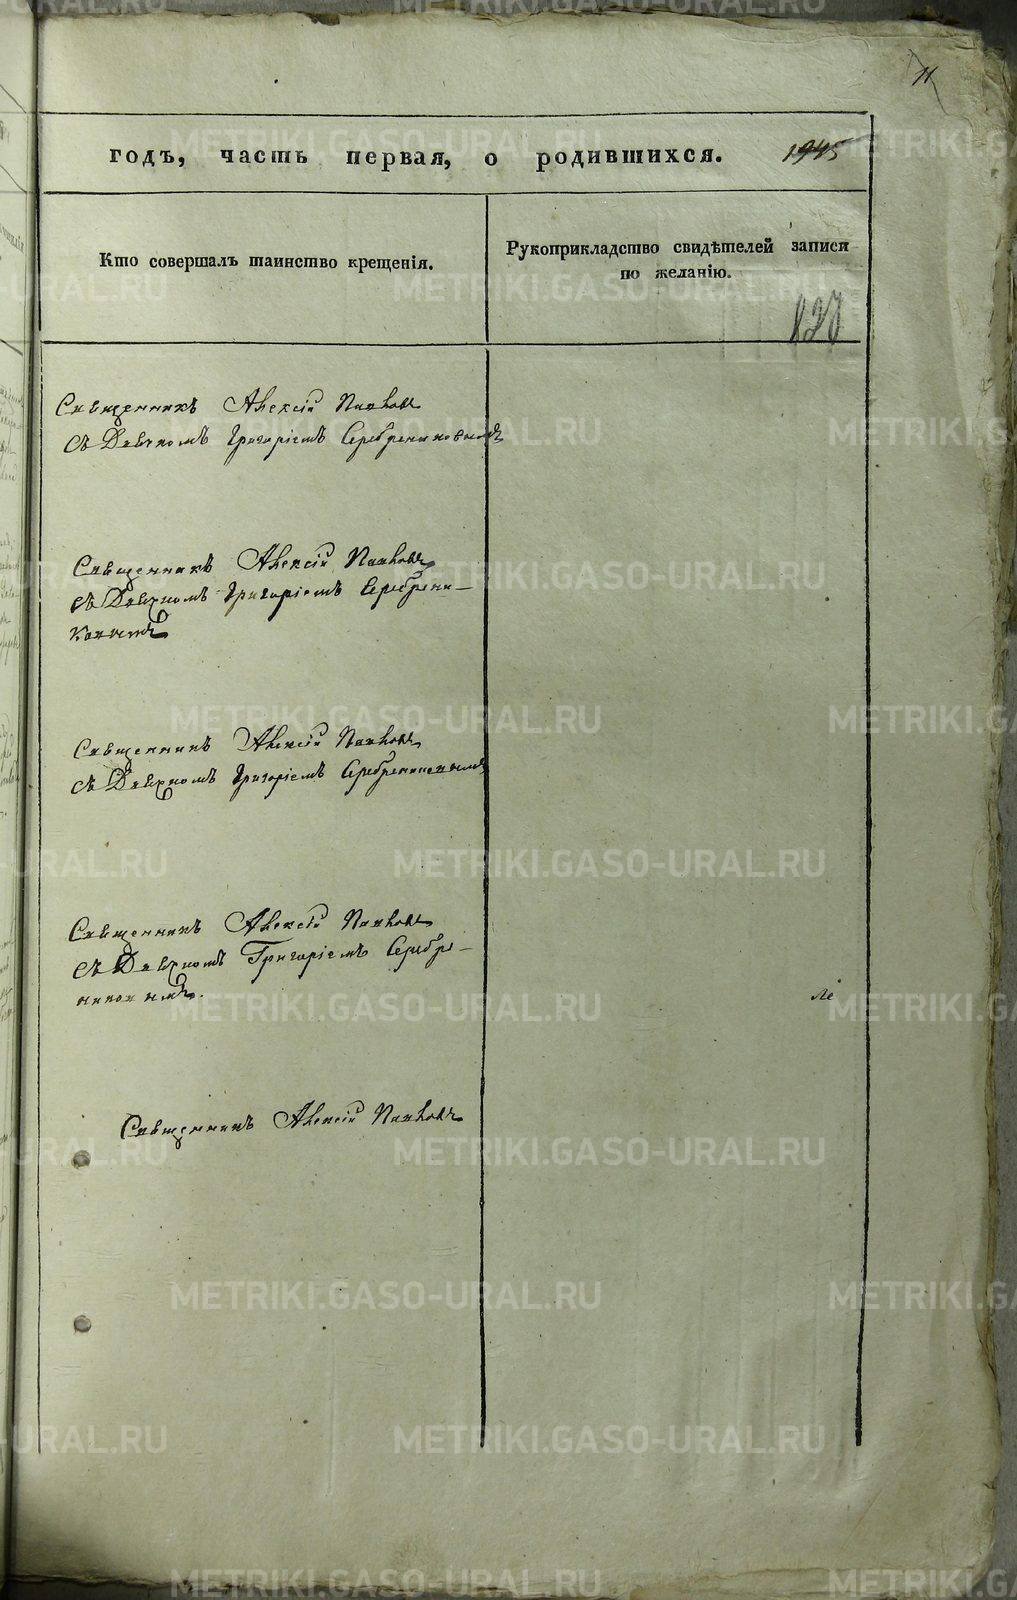 11
годъ, часть первая, о родившихся. 1945
Кто совершалъ таинство крещенія.
Рукоприкладство свидѣтелей записи
по желанію.
Священникъ Алексій
съ Дьячкомъ Григоріемъ Серебрениковымъ
Священникъ Алексій
съ Дьячкомъ Григоріемъ Серебрени–
ковымъ
Священникъ Алексій
съ Дьячкомъ Григоріемъ Серебрениковымъ
Священникъ Алексій
съ Дьячкомъ Григоріемъ Серебре–
никовымъ.
Священникъ Алексій
METRIKI.GASO-URAL.RU